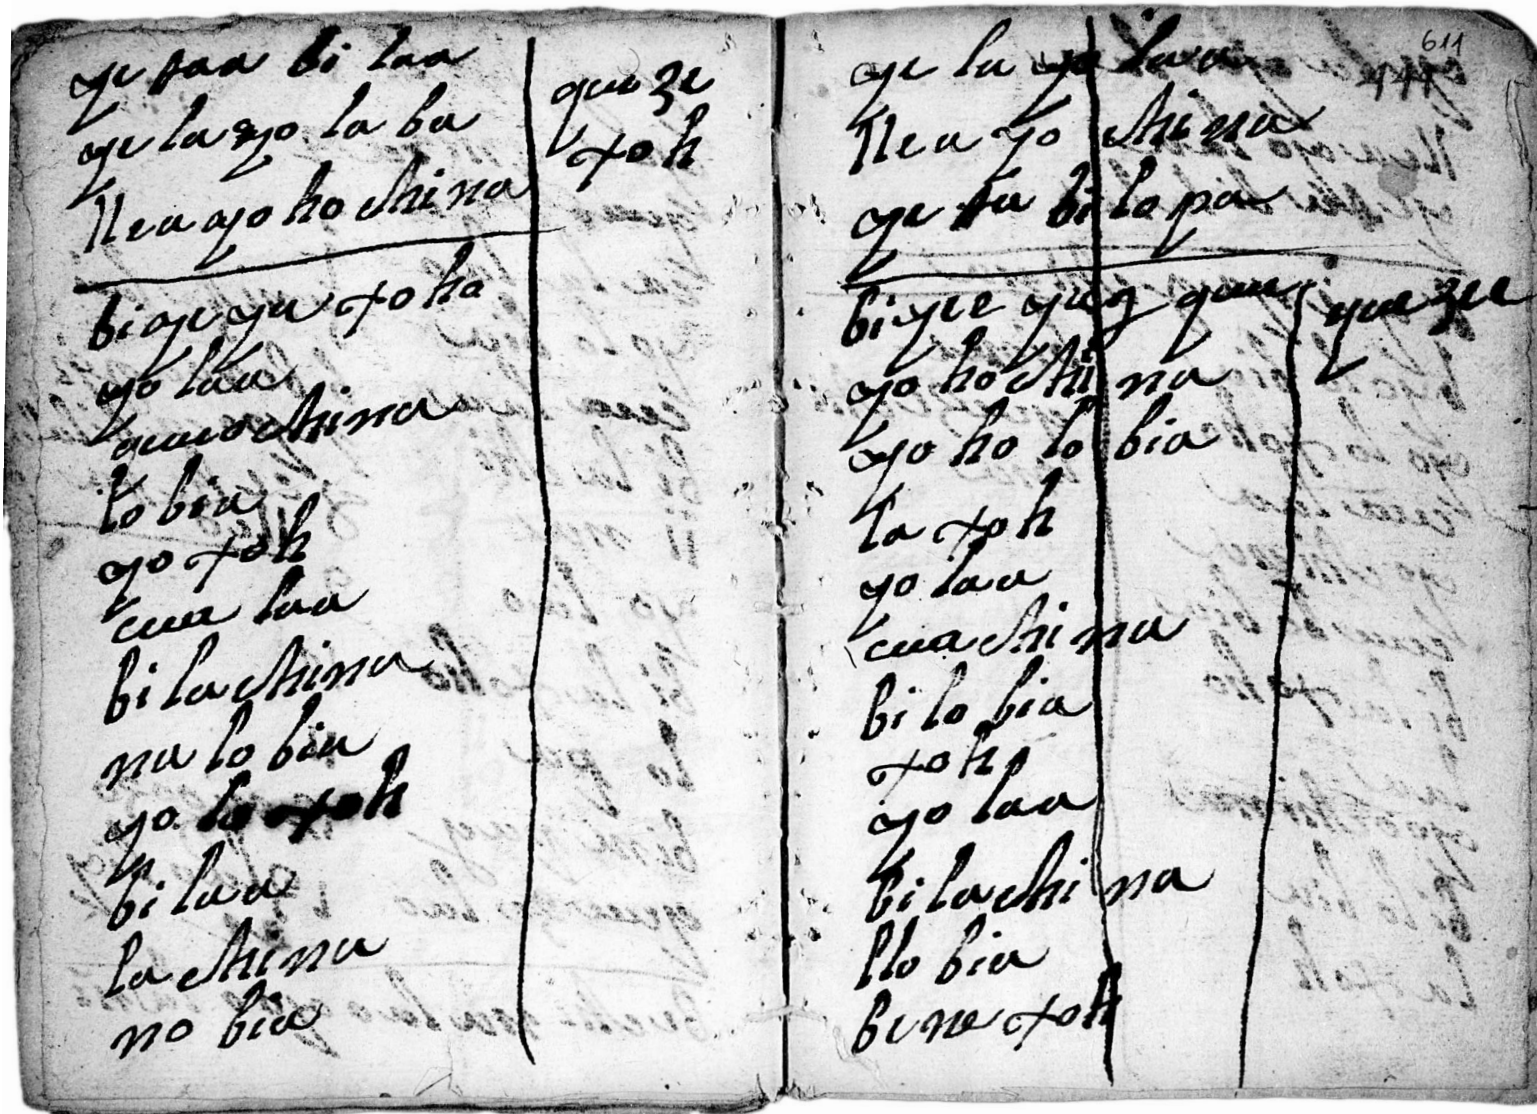 ye taa bi laa
ye la yo la ba
llea yo ho china
que ze
xoh
bi ye yu xoho
yo laa
china
lo bia
yo xoh
cua laa
bi la china
na lo bia
yo la xoh
bi laa
la china
no bia
611
ye la yo laa
llea yo china
ye ta bi lopa
bi yee
que zee
yo ho china
yo ho lo bia
la xoh
yo laa
cua china
bi lo bia
xoh
yo laa
bi la china
llo bia
bene xoh